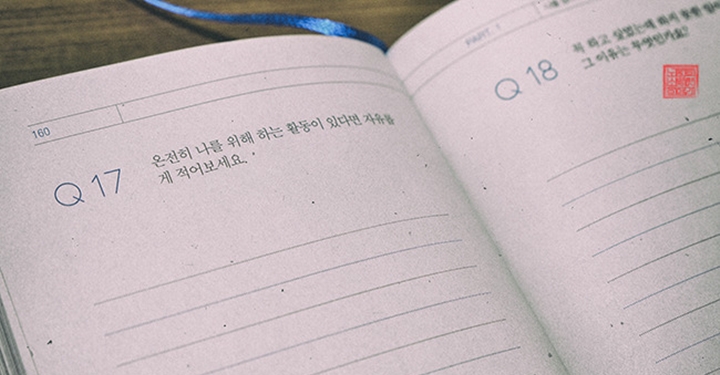 160
Q 17
온전히 나를 위해 하는 활동이 있다면 자유롭
게 적어보세요.
PART. 1
Q 18
꼭 하고 싶었는데 하지 못한
그 이유는 무엇인가요?